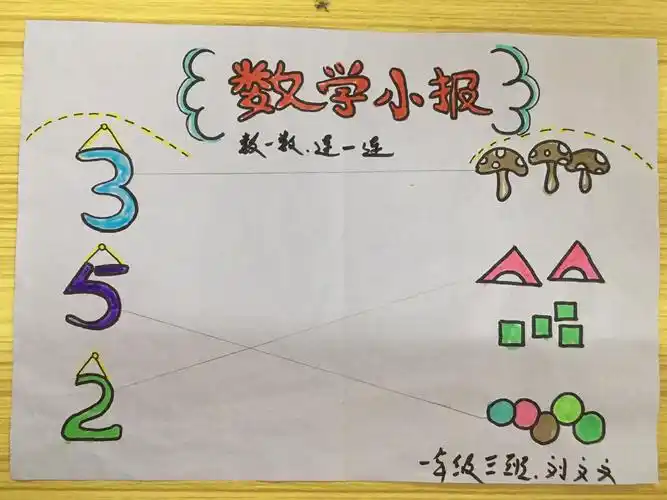 数学小报
数一数、连一连
3
5
2
一年级三班、刘文文